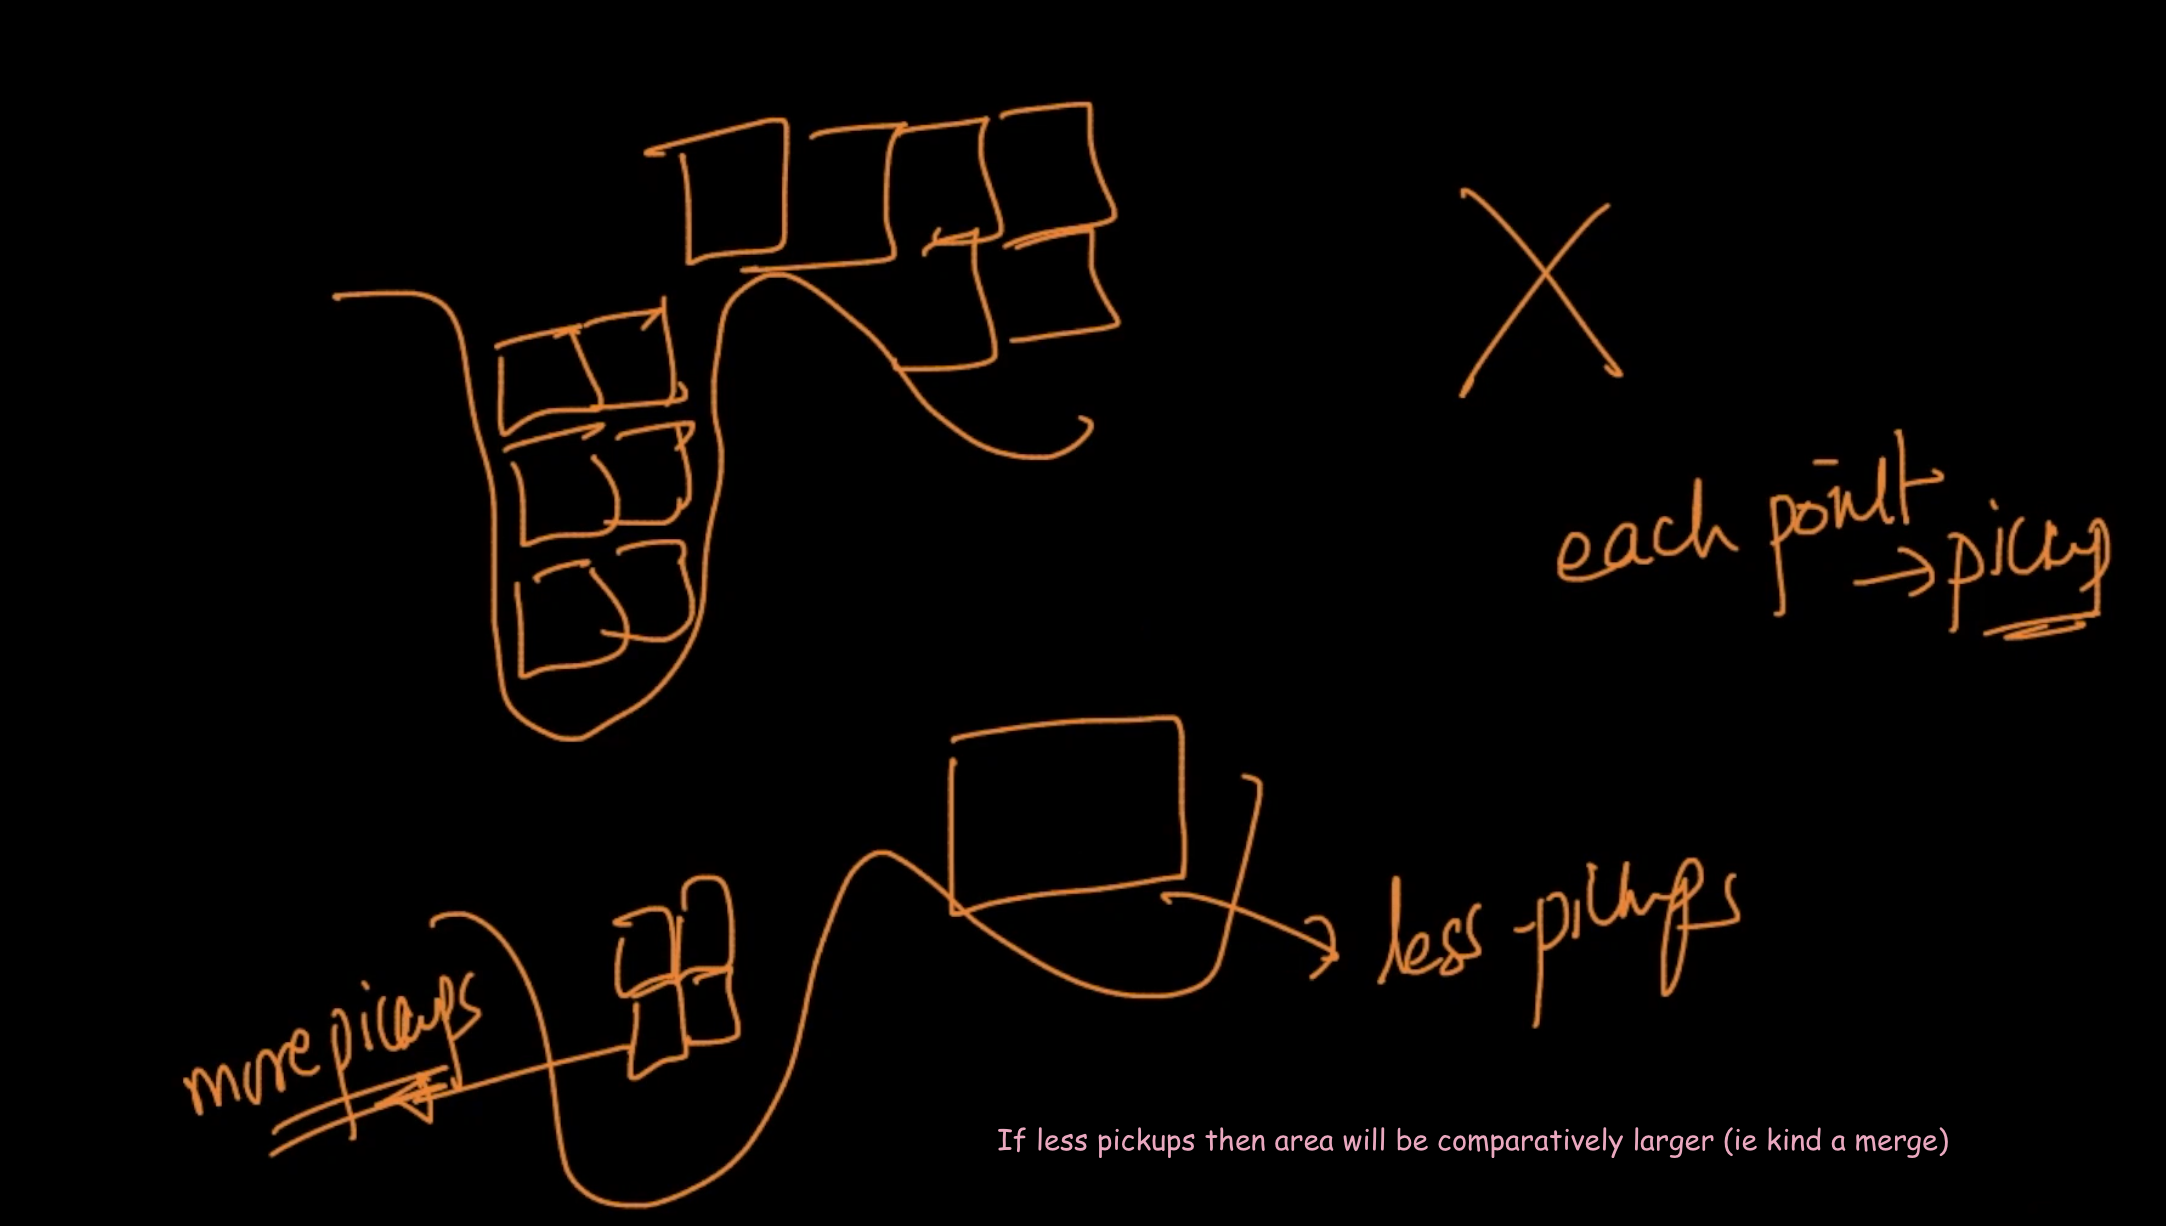 each point
→ pickup
less pickups
more pickups
If less pickups then area will be comparatively larger (ie kind a merge)